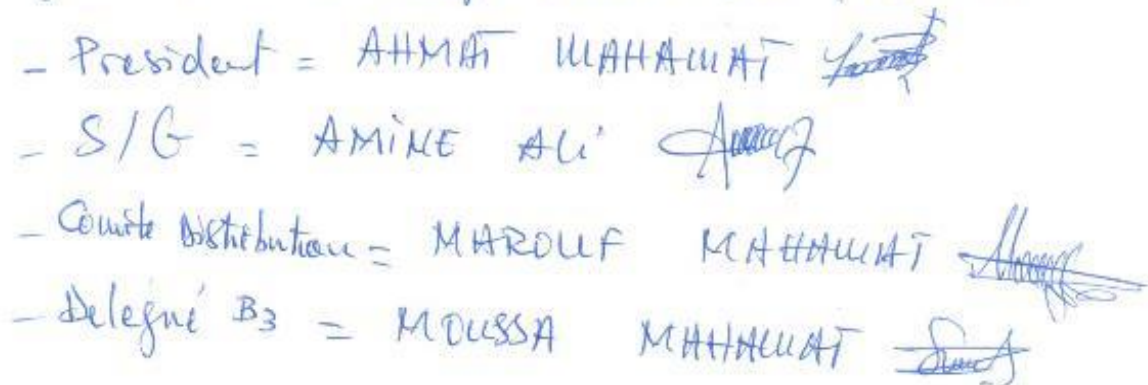 - President = AHMAT MAHAMAT
- S/G = AMINE ALI
- Comité Distribution = MAROUF MAHAMAT
- Delegué B3 = MOUSSA MAHAMAT